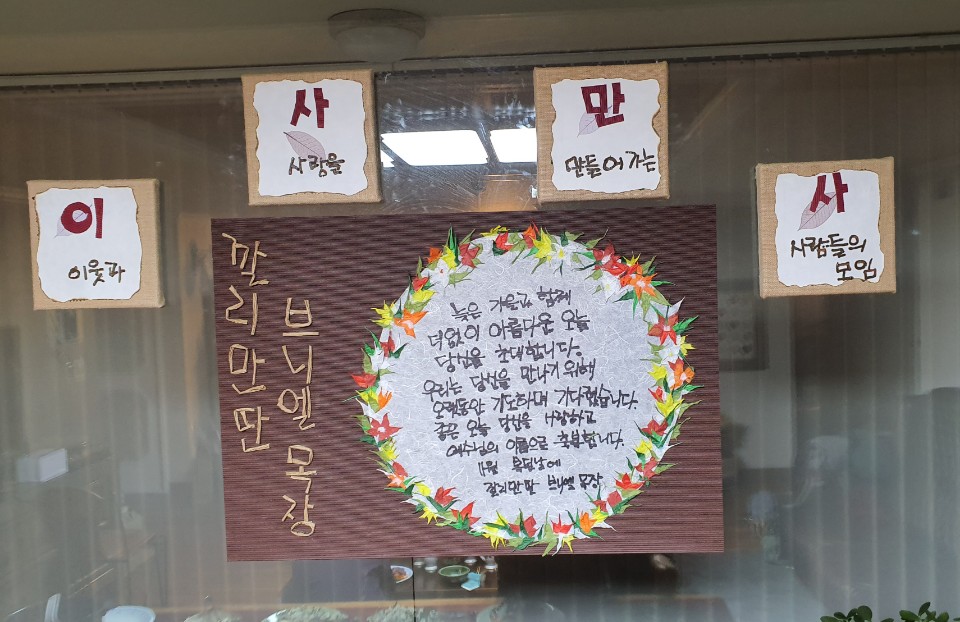 이
이웃과
사
사랑을
만
만들어가는
사
사람들의
모임
깔리만딴
브니엘 목장
늦은 가을과 함께
더없이 아름다운 오늘
당신을 초대합니다.
우리는 당신을 만나기 위해
오랫동안 기도하며 기다렸습니다.
좋은 오늘 당신을 사랑하고
예수님의 이름으로 축복합니다.
11월
깔리만딴 브니엘 목장